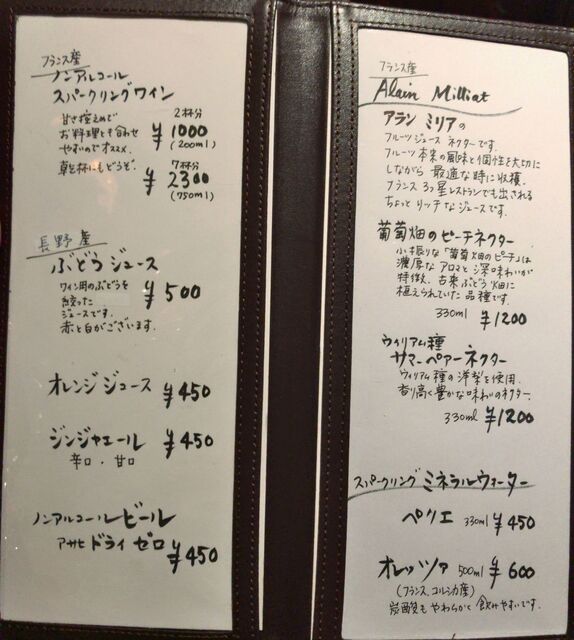 フランス産
ノンアルコール
スパークリングワイン
甘さ控えめで
お料理とも合わせ
やすいのでオススメ.
乾杯にもどうぞ.
2杯分
¥1000
(200ml)
7杯分
¥2300
(750ml)
長野産
ぶどうジュース
ワイン用のぶどうを
絞った
ジュースです.
赤と白がございます.
¥500
オレンジジュース ¥450
ジンジャエール ¥450
辛口.甘口
ノンアルコールビール
アサヒ ドライ ゼロ ¥450
フランス産
Alain Milliat
アラン ミリアの
フルーツジュース ネクターです.
フルーツ本来の風味と個性を大切に
しながら 最適な時に収穫.
フランス3ッ星レストランでも出される
ちょっとリッチなジュースです.
葡萄畑のピーチネクター
小振りな「葡萄畑のピーチ」は
濃厚なアロマと深い味わいが
特徴. 古来ぶどう畑に
植えられていた品種です.
330ml ¥1200
ウィリアム種
サマーペアーネクター
ウィリアム種の洋梨を使用.
香り高く豊かな味わいのネクター.
330ml ¥1200
スパークリング ミネラルウォーター
ペリエ 330ml ¥450
オレッツァ 500ml ¥600
(フランス,コルシカ産)
炭酸もやわらかく飲みやすいです.